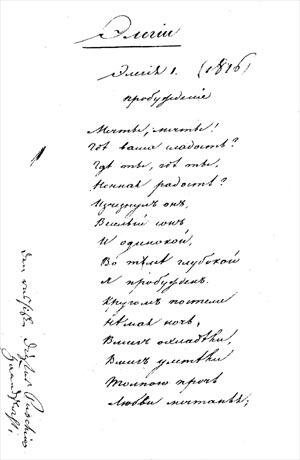 Элегіи
Элегія 1. (1816)
пробужденіе
Мечты, мечты!
Гдѣ ваша сладость?
Гдѣ ты, гдѣ ты,
Ночная радость?
Изчезнулъ онъ,
Веселый сонъ
И одинокой,
Во тьмѣ глубокой
Я пробужденъ.
Кругомъ постели
Нѣмая ночь,
Вмигъ охладѣли,
Вмигъ улетѣли
Толпою прочь
Любви мечтанья;
Puschkin
Handschrift.